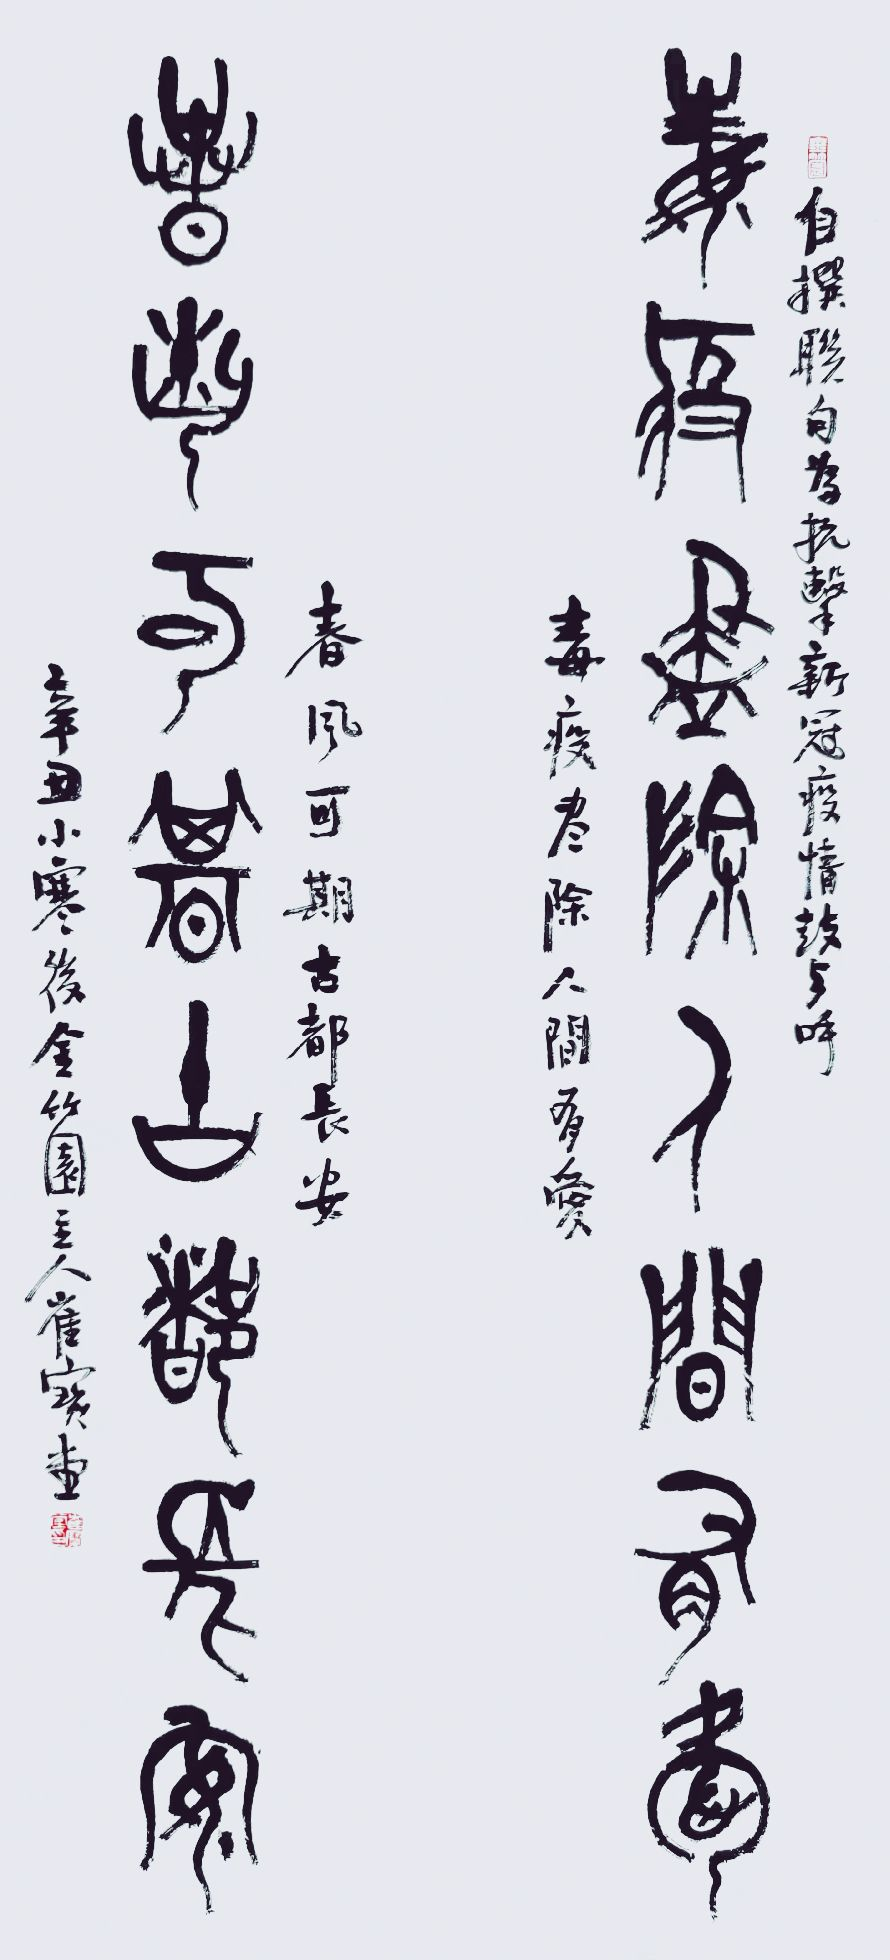 自撰聯句為抗擊新冠疫情鼓与呼
毒疫盡除人間有愛
毒疫尽除人間有愛
春風可期古都長安
春風可期古都長安
辛丑小寒後金竹園主人崔寶堂